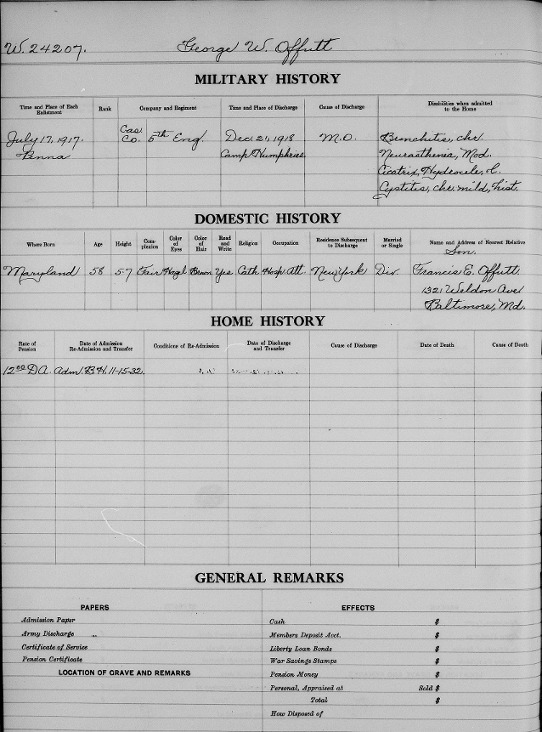 W.24207. George W. Offutt
MILITARY HISTORY
Time and Place of Each Enlistment Rank Company and Regiment Time and Place of Discharge Cause of Discharge Disabilities when admitted to the Home
July 17, 1917. Cas. Co. 5th Eng. Dec 21, 1918 M.D. Bronchitis, chr.
Penna Camp Humphreys Neurasthenia, Mod.
Cicatrix, Hydrocele, L.
Cystitis, chr. mild, hist.
DOMESTIC HISTORY
Where Born Age Height Complexion Color of Eyes Color of Hair Read and Write Religion Occupation Residence Subsequent to Discharge Married or Single Name and Address of Nearest Relative
Son.
Maryland 58 5-7 Fair Hazel Brown Yes Cath. Hosp. Att. New York Div. Francis E. Offutt
1321 Weldon Ave
Baltimore, Md.
HOME HISTORY
Rate of Pension Date of Admission Re-Admission and Transfer Conditions of Re-Admission Date of Discharge and Transfer Cause of Discharge Date of Death Cause of Death
12.00 DA. Adm. B.H. 11-15-32.
GENERAL REMARKS
PAPERS
Admission Paper
Army Discharge "
Certificate of Service
Pension Certificate
LOCATION OF GRAVE AND REMARKS
EFFECTS
Cash $
Members Deposit Acct. $
Liberty Loan Bonds $
War Savings Stamps $
Pension Money $
Personal, Appraised at Sold $
Total $
How Disposed of